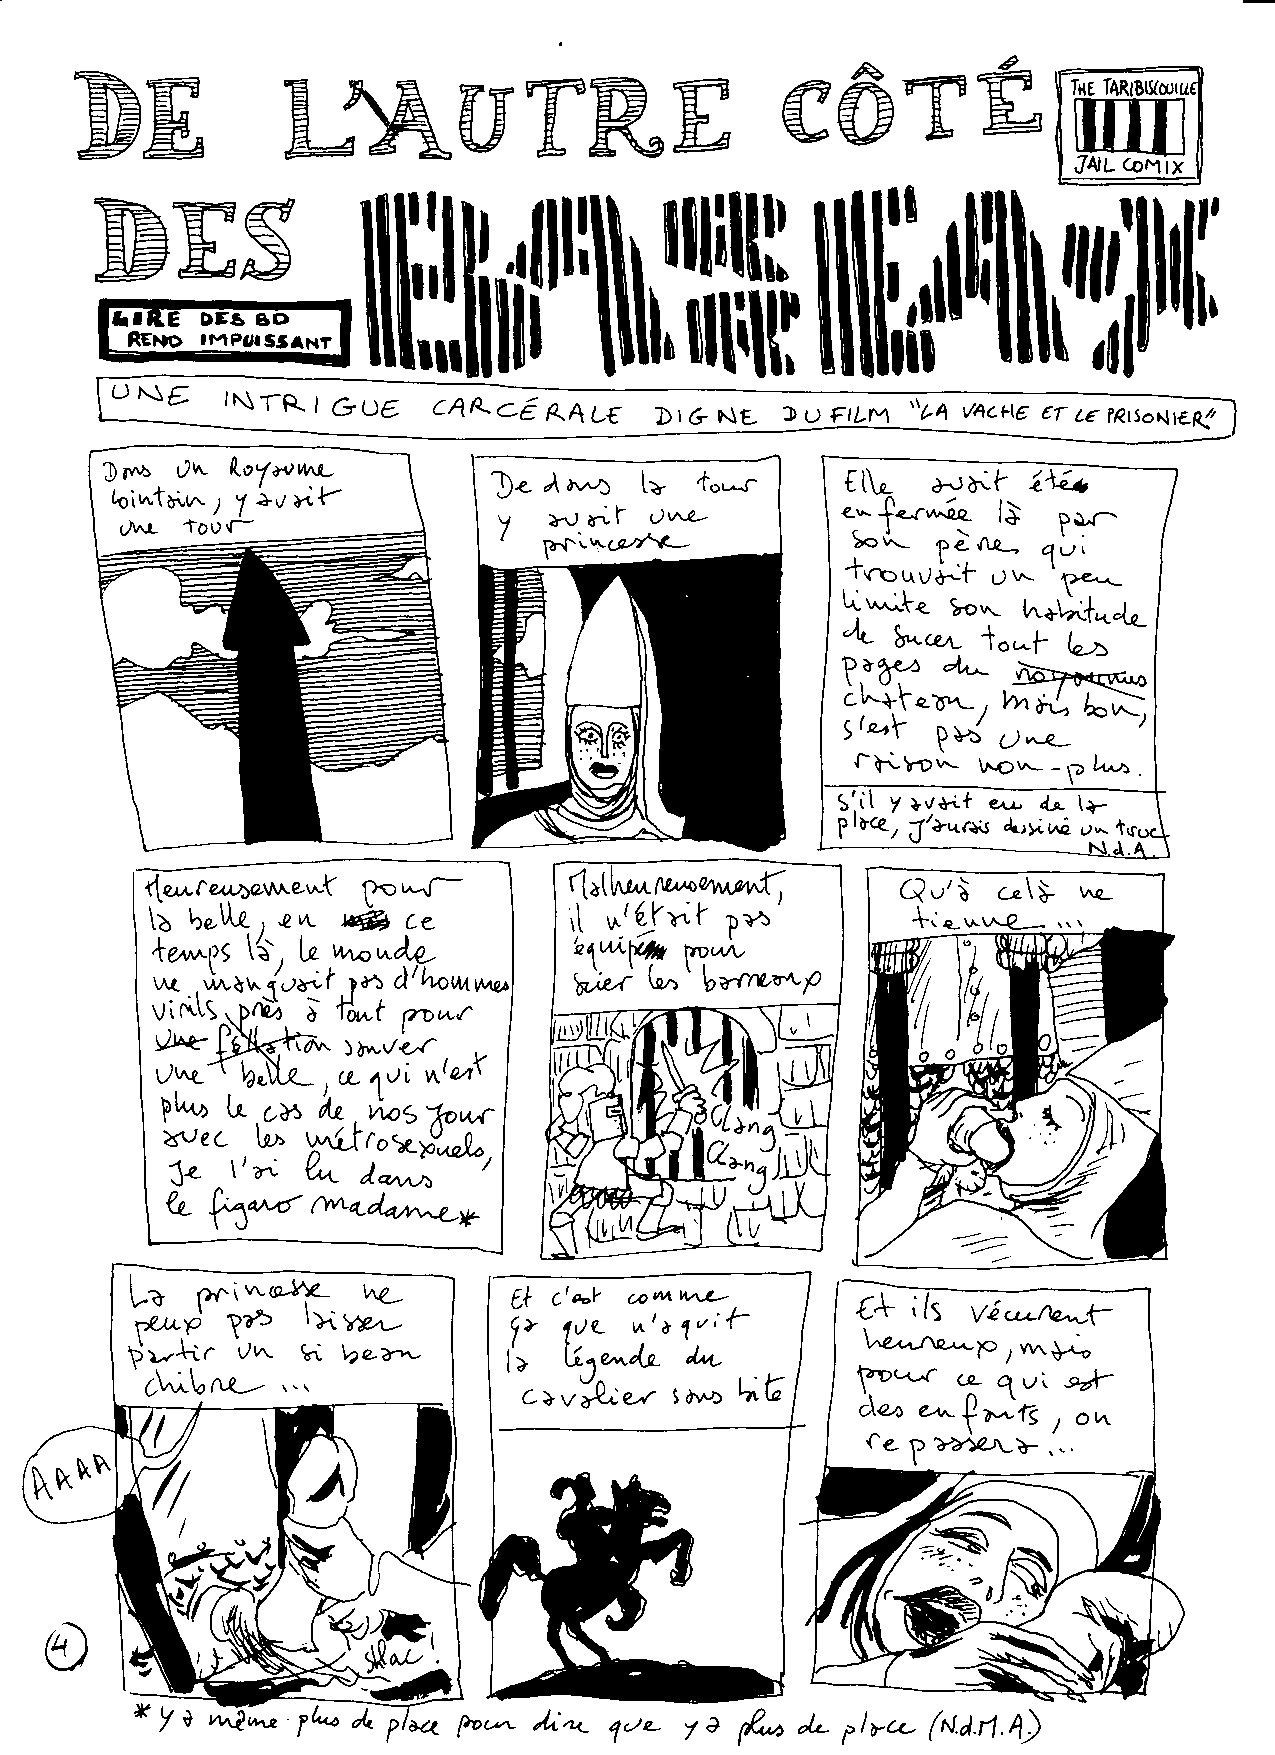 DE L'AUTRE CÔTÉ
THE TARIBISCOUILLE
JAIL COMIX
DES BARREAUX
LIRE DES BD
REND IMPUISSANT
UNE INTRIGUE CARCÉRALE DIGNE DU FILM "LA VACHE ET LE PRISONIER"
Dans un Royaume
lointain, y avait
une tour
De dans la tour
y avait une
princesse
Elle avait été
enfermée là par
son père, qui
trouvait un peu
limite son habitude
de sucer tout les
pages du royaumes
chateau, mais bon,
s'est pas une
raison non-plus.
S'il y avait eu de la
place, j'aurais dessiné un truc
N.d.A.
Heureusement pour
la belle, en ce
temps là, le monde
ne manquait pas d'hommes
virils près à tout pour
une fellation sauver
une belle, ce qui n'est
plus le cas de nos jour
avec les métrosexuels,
je l'ai lu dans
le figaro madame*
Malheureusement,
il n'était pas
équipé pour
scier les barreaux
Clang
Clang
Qu'à celà ne
tienne...
La princesse ne
peux pas laisser
partir un si beau
chibre...
AAAA
Shlac!
Et c'est comme
ça que n'aquit
la légende du
cavalier sans bite
Et ils vécurent
heureux, mais
pour ce qui est
des enfants, on
repassera...
4
* y a même plus de place pour dire que y a plus de place (N.d.M.A.)